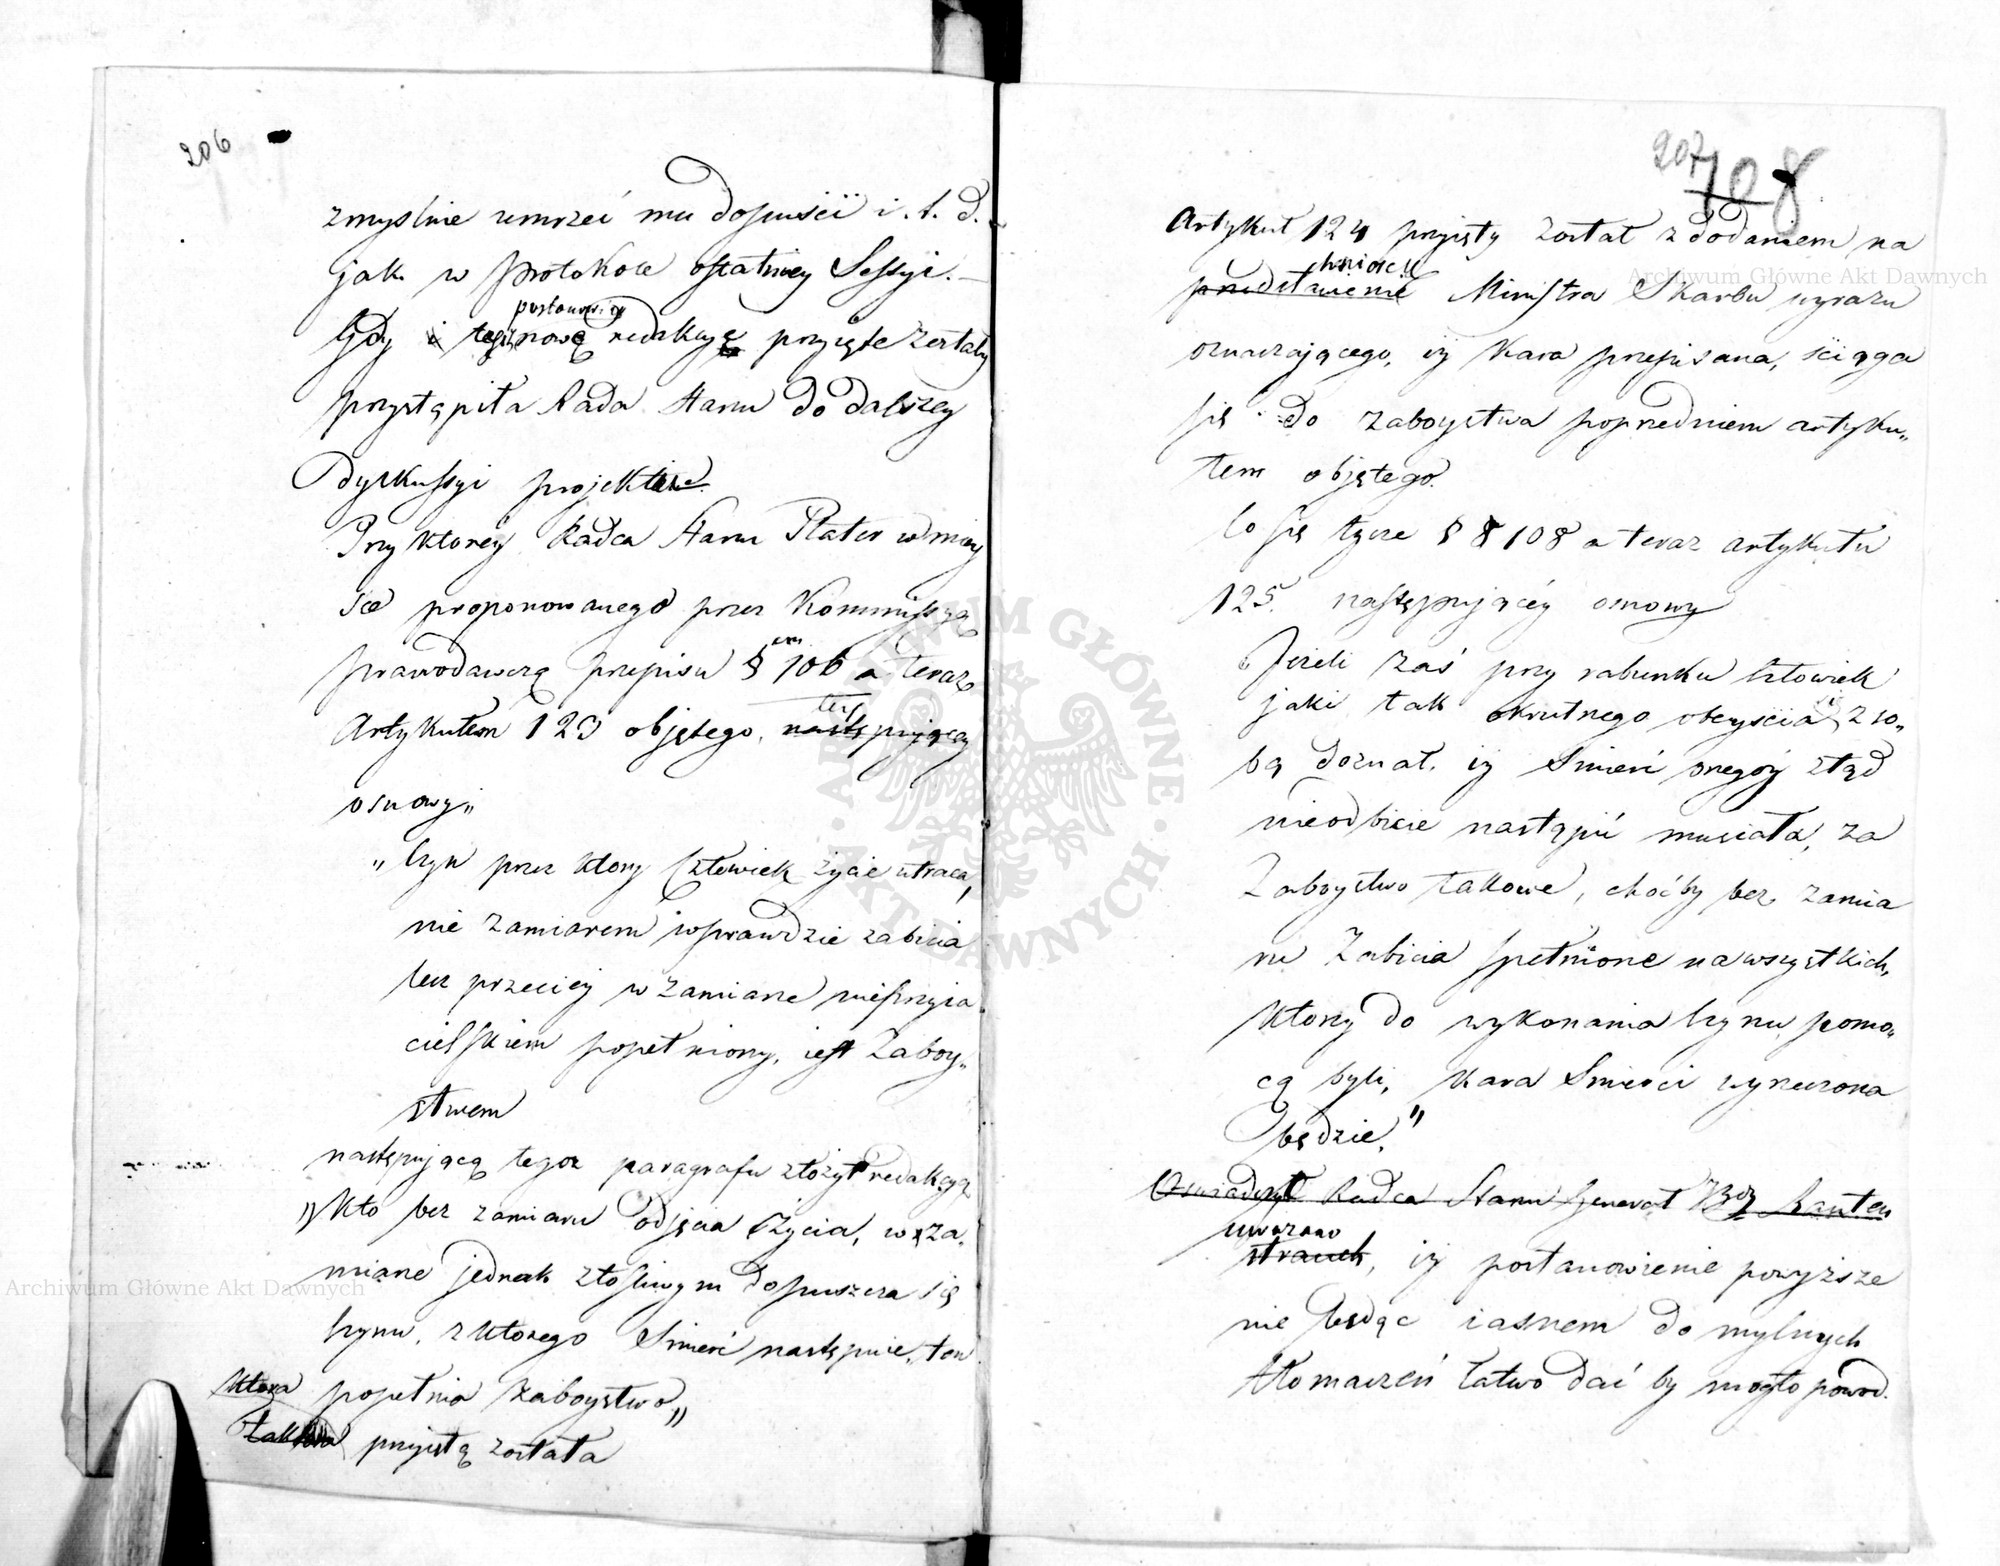 206
zmyslnie umrzeć mu dopuścił i. t. d.
jak w Protokole ostatniey Sessyi. —
postanowi
Gdy i tego nowę redakcyę przyięte zostały
przystąpiła Rada Stanu do dalszey
dyskussyi projektu.
Przy ktorey Radca Stanu Plater w miey
sce proponowanego przez Kommissyą
prawodawczą przepisu § 106 a teraz
em
Artykułem 123 objętego, następującey
tey
osnowy„
„Czyn przez ktory Człowiek życie utraca,
nie zamiarem wprawdzie zabicia
lecz przeciey w zamiarze nieprzyia
cielskiem popełniony, iest Zaboy„
stwem
następującą tegoż paragrafu złożył redakcyą
„Kto bez zamiaru odjęcia życia, w za„
miarze jednak złośliwym dopuszcza się
Czynu, z ktorego Smierć następuie, ten
popełnia zaboystwo„
ktora
przyiętą została
207
108
Artykuł 124 przyięty został z dodaniem na
przedstawienie Ministra Skarbu wyrazu
oznaczającego, iż kara przepisana, ściąga
się do zaboystwa poprzedniem artyku„
łem objętego.
Co się tycze § 108 a teraz artykułu
125. następującéy osnowy
„Jeżeli zaś przy rabunku Człowiek
jaki tak okrutnego obeyścia się z so„
bą doznał, iż Smierć onegoż ztąd
nieodbicie nastąpić musiała, za
Zaboystwo takowe, choćby bez zamia
ru Zabicia spełnione na wszystkich,
ktorzy do wykonania Czynu pomo„
cą byli, kara Smierci wyrzeczona
będzie."
Oswiadczył Radca Stanu Generał Xżę Rauten
uważano
strauch, iż postanowienie powyższe
nie będąc iasnem do mylnych
tłomaczeń łatwo dać by mogło powod.
Archiwum Główne Akt Dawnych
Archiwum Główne Akt Dawnych
ARCHIWUM GŁÓWNE · AKT DAWNYCH ·